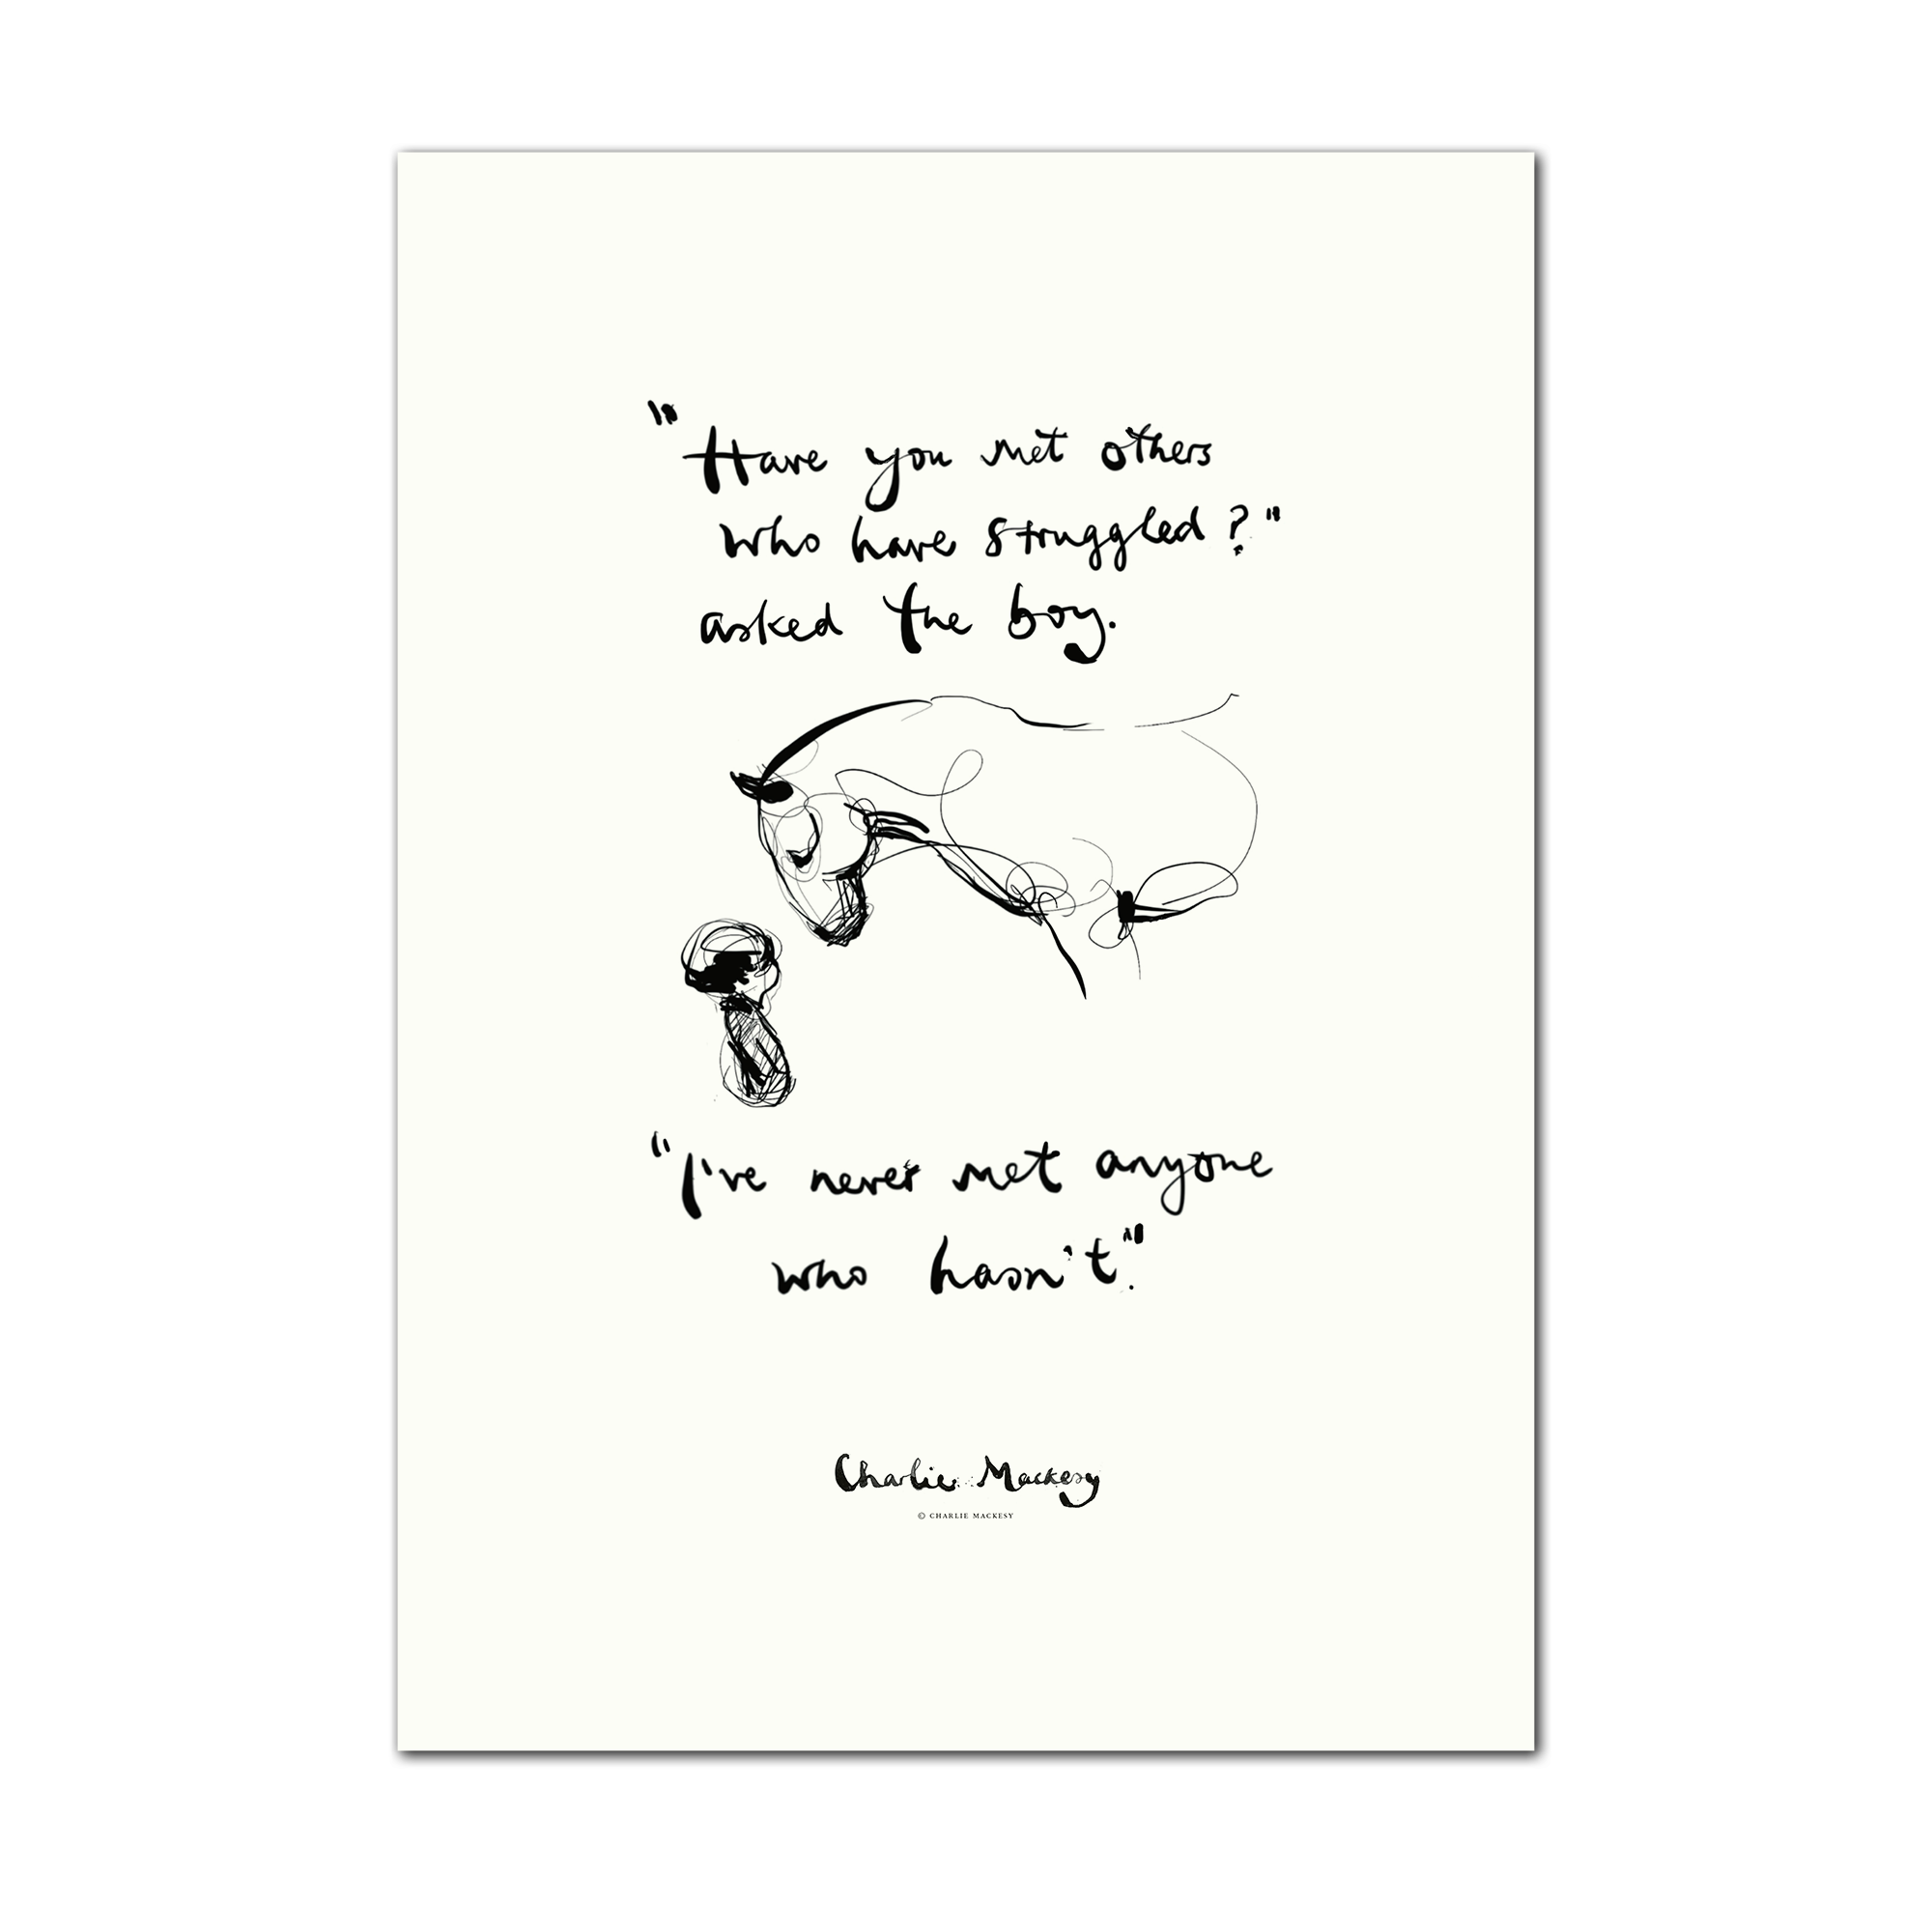 "Have you met others
who have struggled?"
asked the boy.
"I've never met anyone
who hasn't".
Charlie Mackesy
© CHARLIE MACKESY